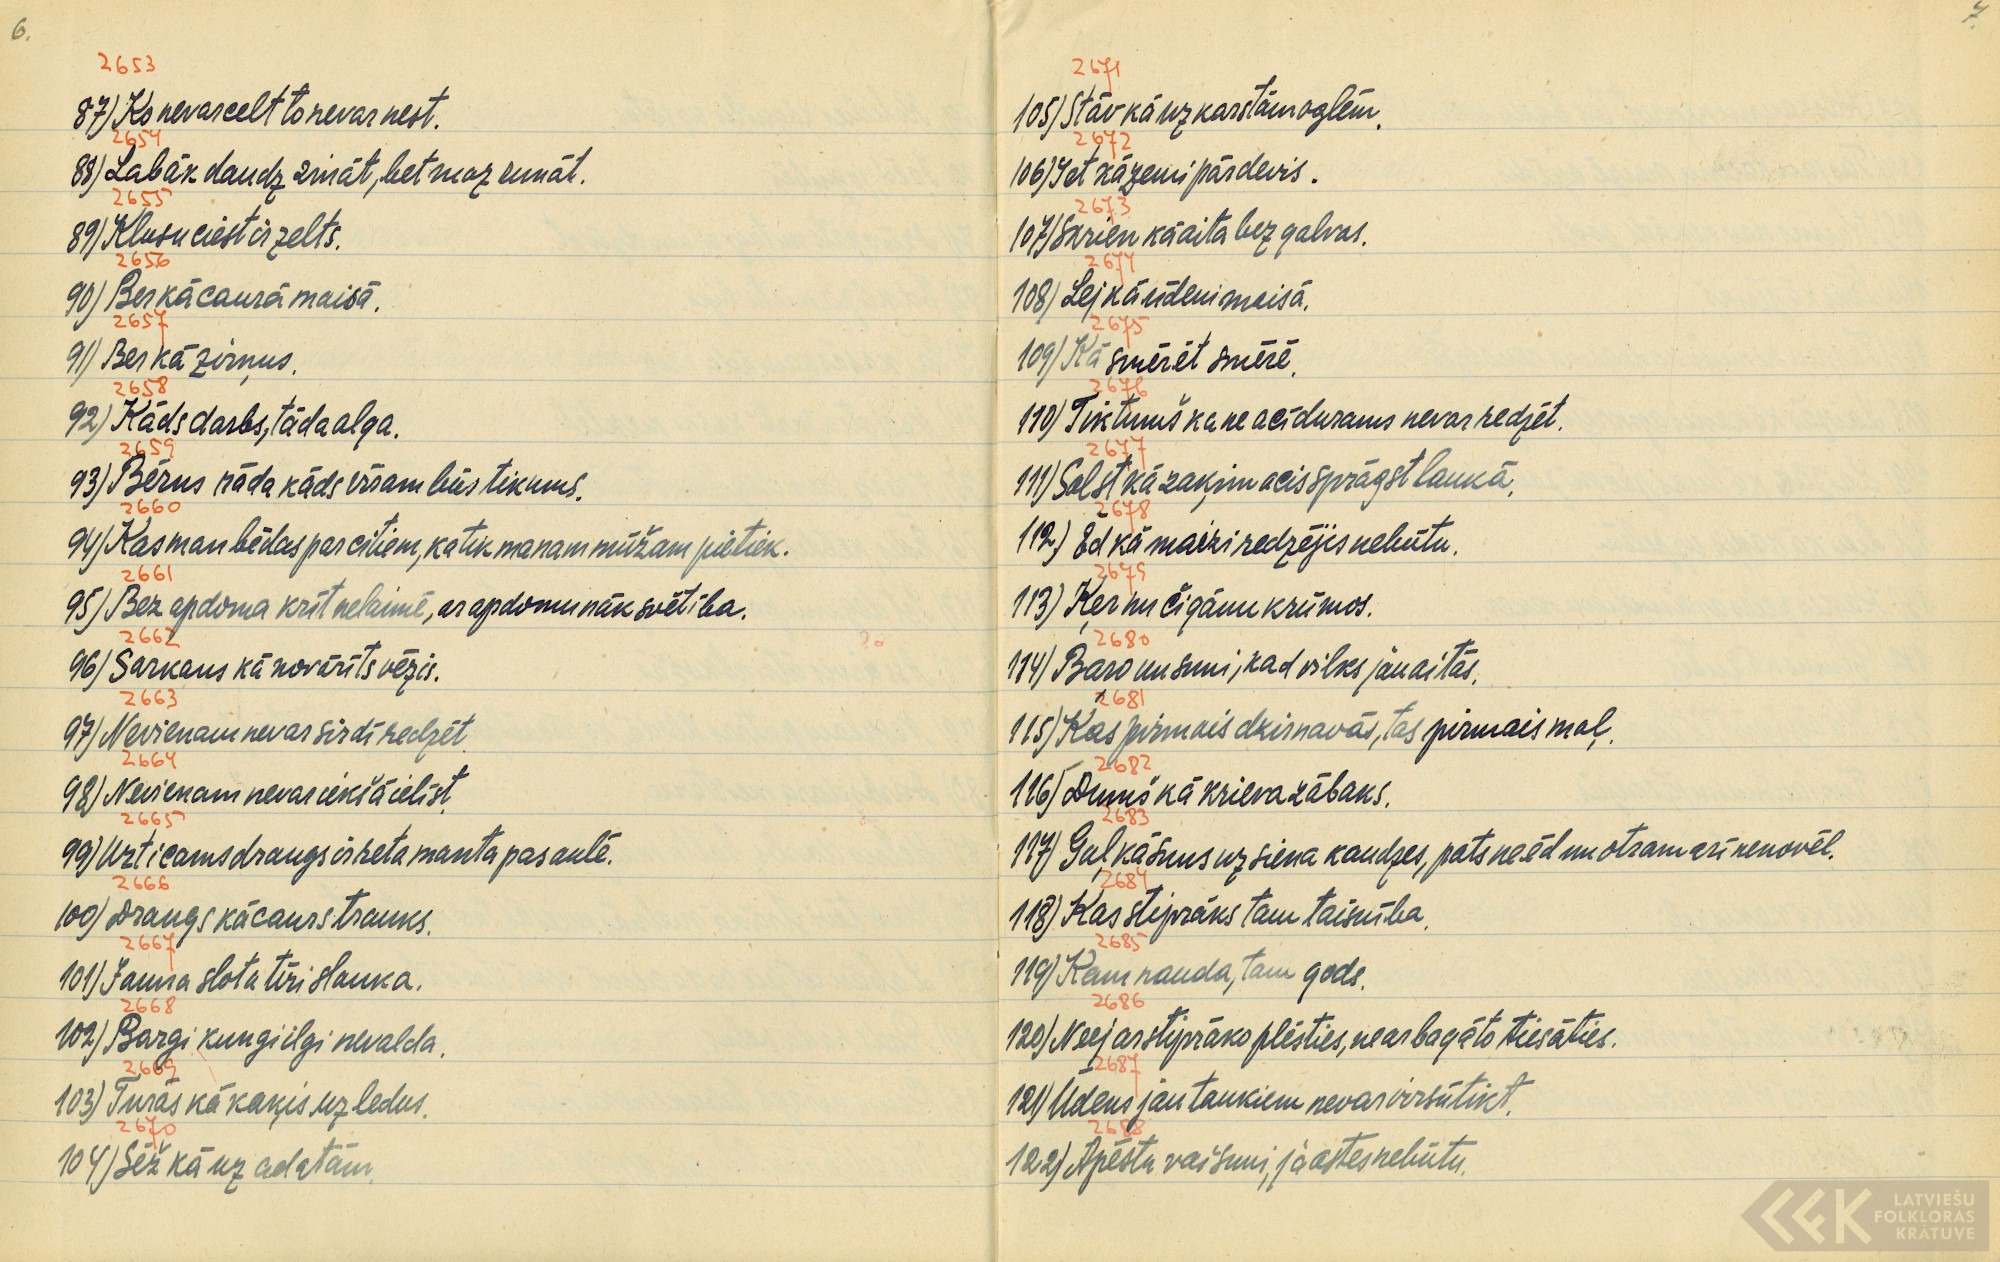 6.
2653
87) Ko nevar celt to nevar nest.
2654
88) Labāk daudz zināt, bet maz runāt.
2655
89) Klusu ciest ir zelts.
2656
90) Ber kā caurā maisā.
2657
91) Ber kā zirņus.
2658
92) Kāds darbs, tāda alga.
2659
93) Bērns rāda kāds vīram būs tikums.
2660
94) Kas man bēdas par citiem, ka tik manam mūžam pietiek.
2661
95) Bez apdoma krīt nelaimē, ar apdomu nāk svētība.
2662
96) Sarkans kā novārīts vēzis.
2663
97) Nevienam nevar sirdī redzēt
2664
98) Nevienam nevar iekšā ielīst
2665
99) Uzticams draugs ir reta manta pasaulē.
2666
100) Draugs kā caurs trauks.
2667
101) Jauna slota tīri slauka.
2668
102) Bargi kungi ilgi nevalda.
2669
103) Turās kā kaķis uz ledus.
2670
104) Sēž kā uz adatām.
7.
2671
105) Stāv kā uz karstām oglēm.
2672
106) Iet kā zemi pārdevis.
2673
107) Skrien kā aita bez galvas.
2674
108) Lej kā ūdeni maisā.
2675
109) Kā smērēt smērē.
2676
110) Tik tumš ka ne acī durams nevar redzēt.
2677
111) Salst kā zaķim acis sprāgst laukā.
2678
112) Ēd kā maizi redzējis nebūtu.
2679
113) Ķer nu čigānu krūmos.
2680
114) Baro nu suni, kad vilks jau aitās.
2681
115) Kas pirmais dzirnavās, tas pirmais maļ.
2682
116) Dumš kā krieva zābaks.
2683
117) Guļ kā suns uz siena kaudzes, pats neēd nu otram arī nenovēl.
2684
118) Kas stiprāks tam taisnība.
2685
119) Kam nauda, tam gods.
2686
120) Neej ar stiprāko plēsties, ne ar bagāto tiesāties.
2687
121) Ūdens jau taukiem nevar virsū tikt.
2688
122) Apēstu vai suni, ja astes nebūtu.
LATVIEŠU
FOLKLORAS
KRĀTUVE